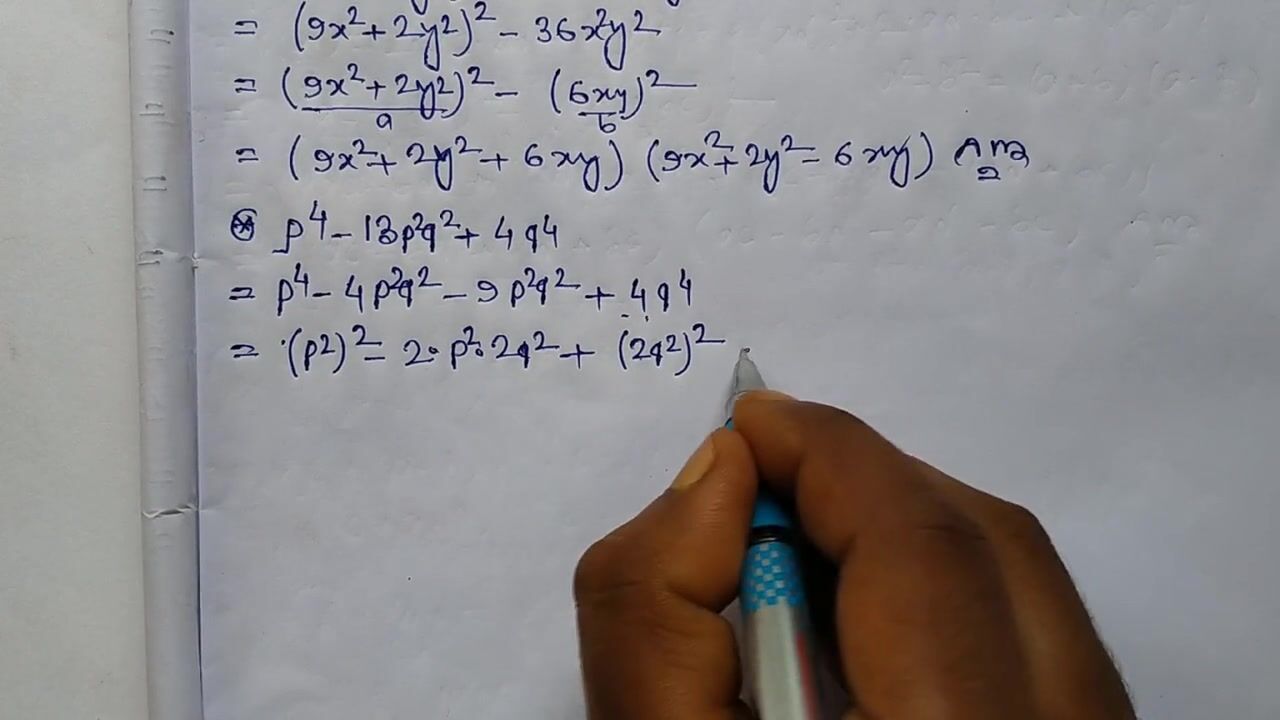 = (9x²+2y²)² - 36x²y²
= (9x²+2y²)² - (6xy)²
a b
= (9x²+2y²+6xy) (9x²+2y²-6xy) Ans
p⁴-13p²q²+4q⁴
= p⁴-4p²q²-9p²q²+4q⁴
= (p²)²-2·p²·2q²+(2q²)²